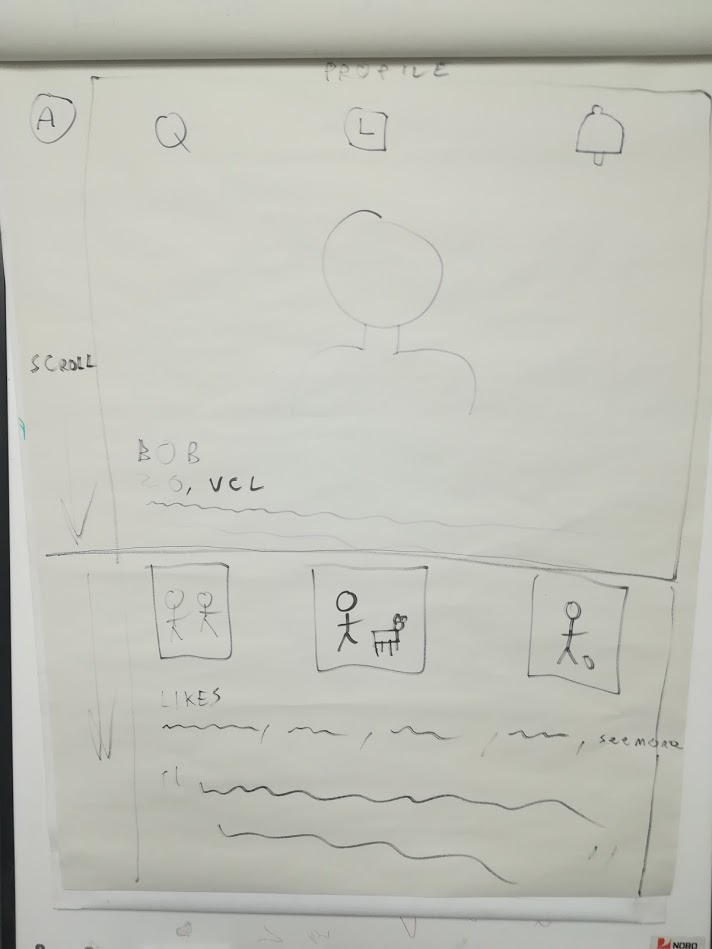 PROFILE
A
L
SCROLL
BOB
26, VCL
LIKES
, , , , see more
" "
NOBO